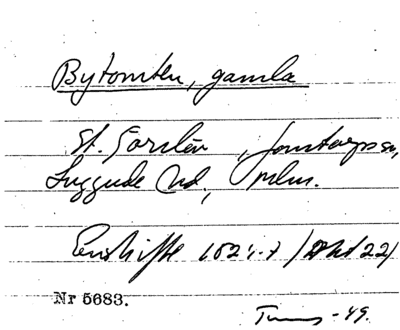 Bytomten, gamla
St. Görslöv, Jonstorps sn,
Luggude hd, Mlm.
Enskifte 1824-7 (Akt 22)
Nr 5683.
-49.